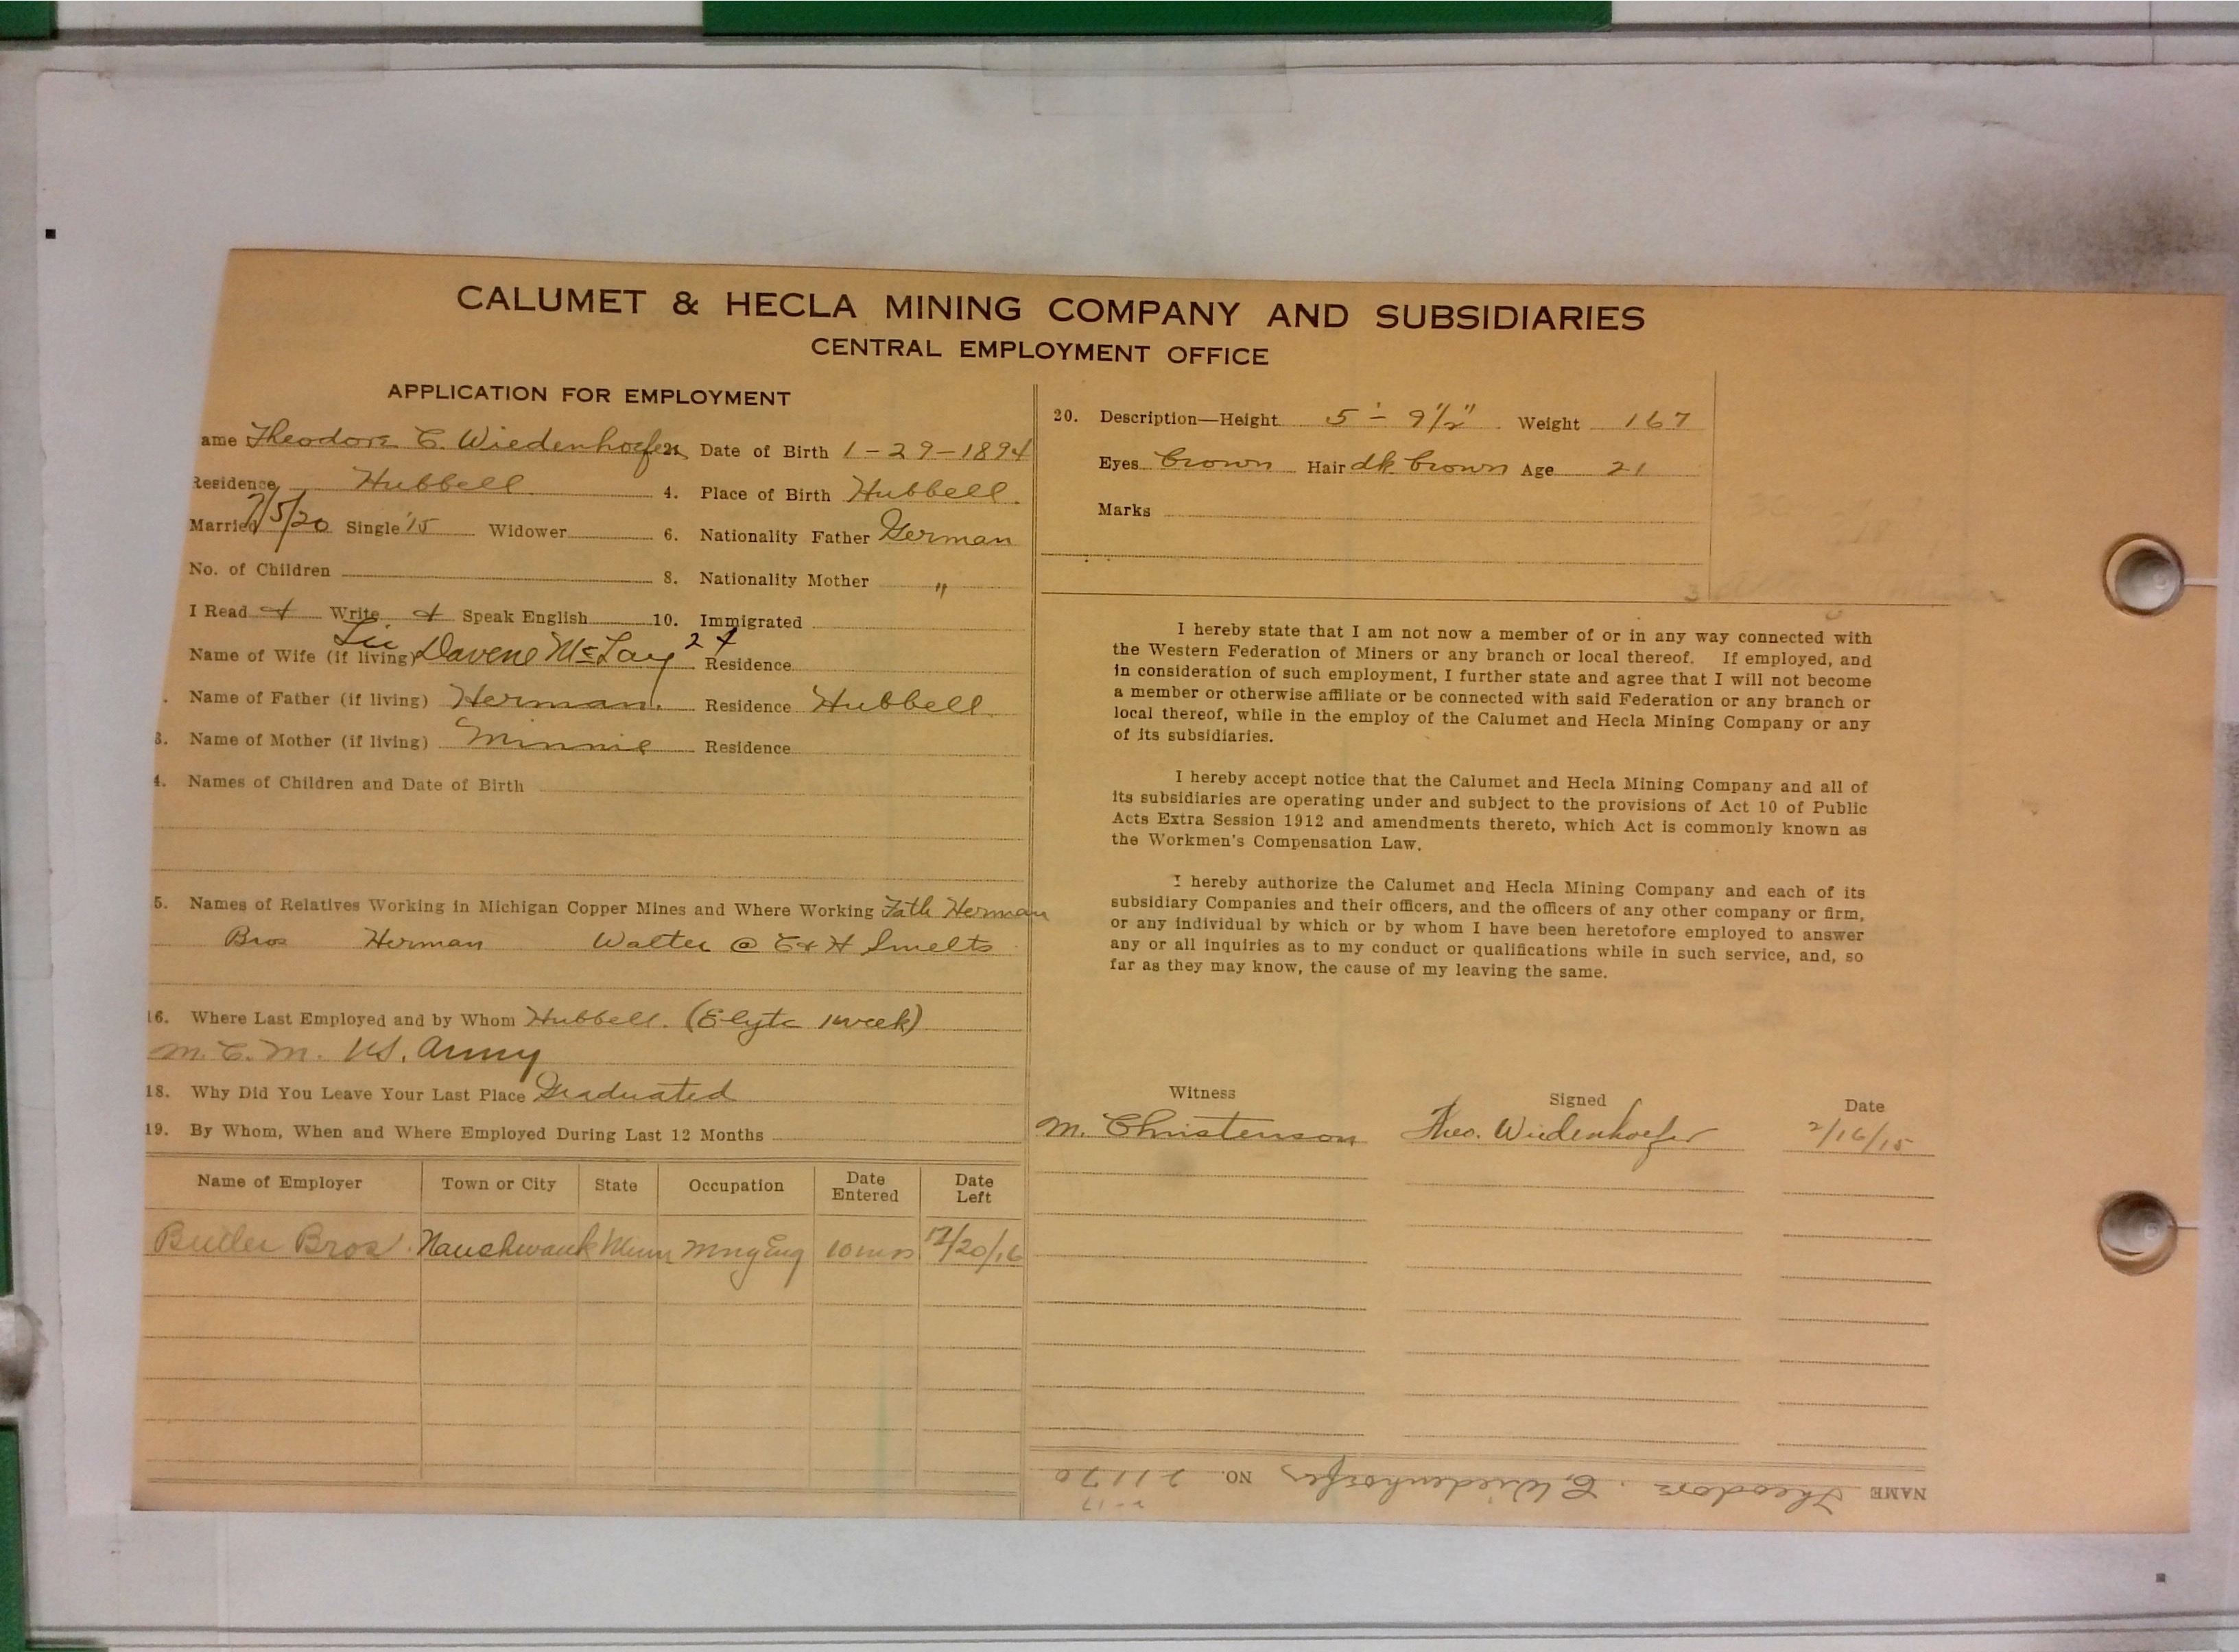 CALUMET & HECLA MINING COMPANY AND SUBSIDIARIES
CENTRAL EMPLOYMENT OFFICE
APPLICATION FOR EMPLOYMENT
ame Theodore C. Wiedenhoefer 2. Date of Birth 1-29-1894
Residence Hubbell 4. Place of Birth Hubbell
Married 7/5/20 Single '15 Widower 6. Nationality Father German
No. of Children 8. Nationality Mother "
I Read + Write + Speak English 10. Immigrated
Name of Wife (if living) Davene McLay 24 Residence
Name of Father (if living) Herman. Residence Hubbell
3. Name of Mother (if living) Minnie Residence
4. Names of Children and Date of Birth
5. Names of Relatives Working in Michigan Copper Mines and Where Working Fath Herman
Bros Herman Walter @ C & H Smelts
16. Where Last Employed and by Whom Hubbell. (1 week)
M.C.M. U.S. Army
18. Why Did You Leave Your Last Place Graduated
19. By Whom, When and Where Employed During Last 12 Months
Name of Employer Town or City State Occupation Date Entered Date Left
Butler Bros. Naushwauk Minn Mng Eng 10 mos 12/20/16
20. Description—Height 5'-9 1/2" Weight 167
Eyes Brown Hair dk brown Age 21
Marks
I hereby state that I am not now a member of or in any way connected with
the Western Federation of Miners or any branch or local thereof. If employed, and
in consideration of such employment, I further state and agree that I will not become
a member or otherwise affiliate or be connected with said Federation or any branch or
local thereof, while in the employ of the Calumet and Hecla Mining Company or any
of its subsidiaries.
I hereby accept notice that the Calumet and Hecla Mining Company and all of
its subsidiaries are operating under and subject to the provisions of Act 10 of Public
Acts Extra Session 1912 and amendments thereto, which Act is commonly known as
the Workmen's Compensation Law.
I hereby authorize the Calumet and Hecla Mining Company and each of its
subsidiary Companies and their officers, and the officers of any other company or firm,
or any individual by which or by whom I have been heretofore employed to answer
any or all inquiries as to my conduct or qualifications while in such service, and, so
far as they may know, the cause of my leaving the same.
Witness Signed Date
M. Christenson Theo. Wiedenhoefer 2/16/15
NAME Theodore C. Wiedenhoefer NO. 21170